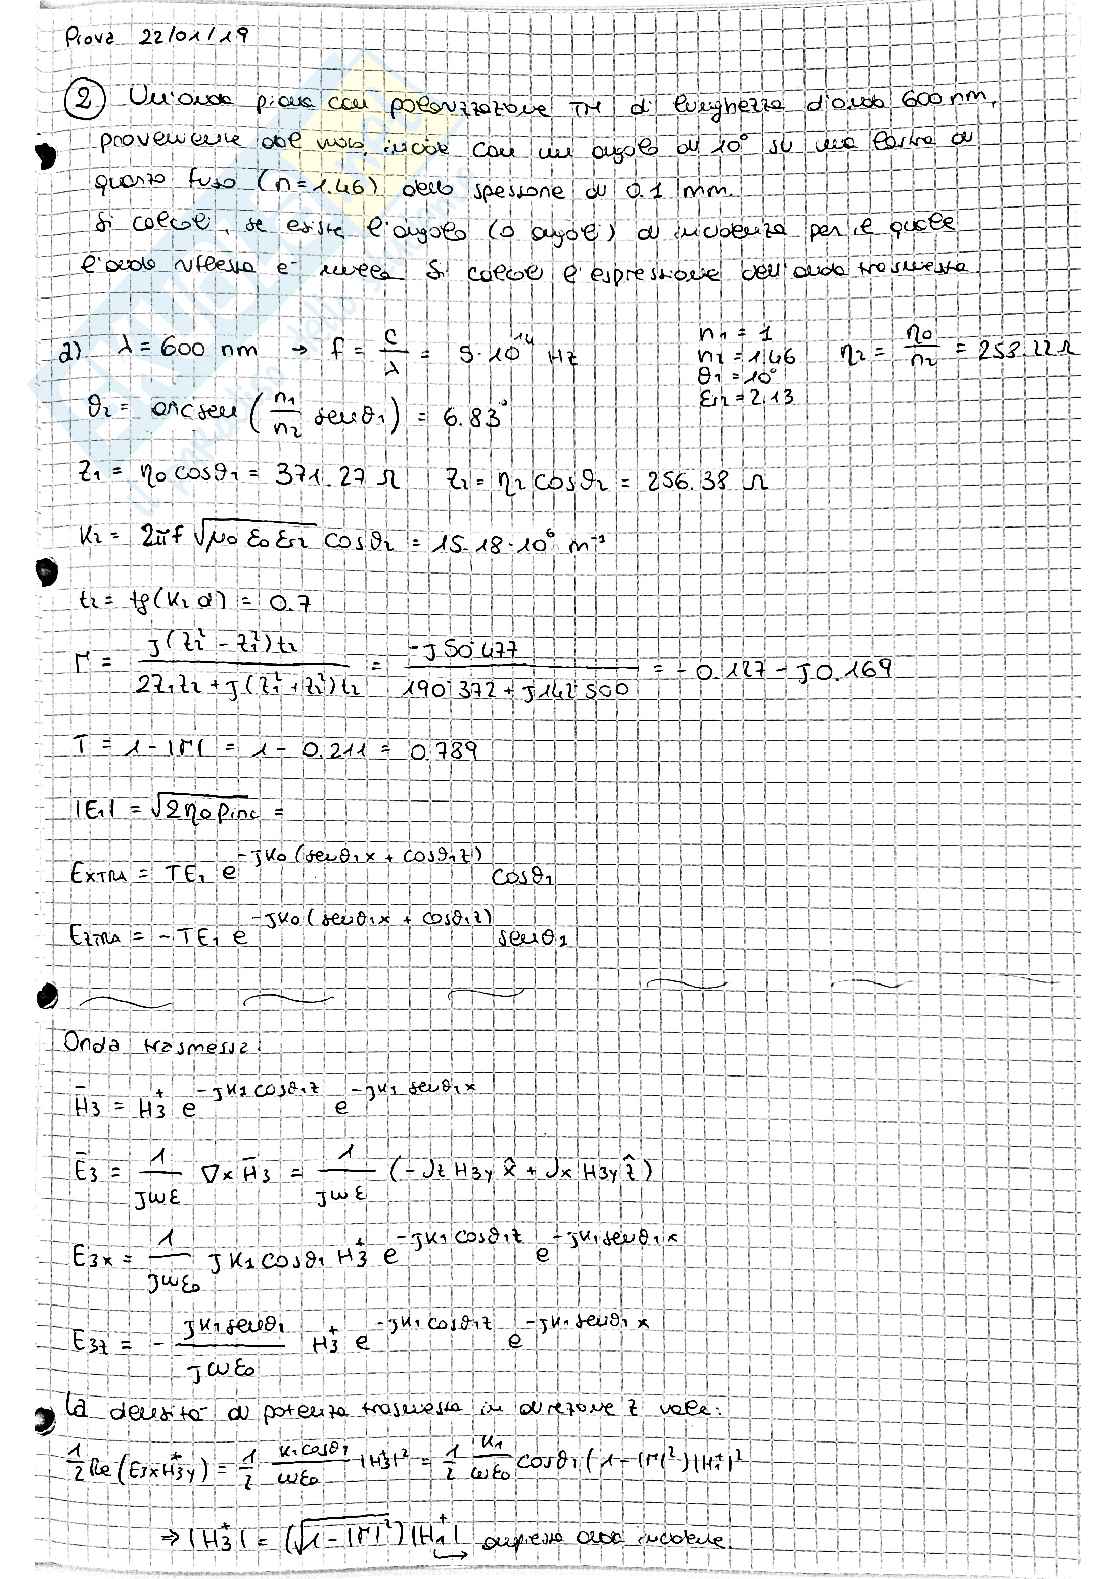 Prova 22/01/19
② Un'onda piana con polarizzazione TM di lunghezza d'onda 600 nm,
proveniente dal vuoto, incide con un angolo di 10° su una lastra di
quarzo fuso (n=1.46) dello spessore di 0.1 mm.
Si calcoli, se esiste l'angolo (o angoli) di incidenza per il quale
l'onda riflessa e' nulla. Si calcoli l'espressione dell'onda trasmessa.
a) λ = 600 nm → f = c/λ = 5·10^14 Hz
n1 = 1
n2 = 1.46
θ1 = 10°
εr2 = 2.13
η2 = η0/n2 = 258.22 Ω
θ2 = arcsen (n1/n2 senθ1) = 6.83°
Z1 = η0 cosθ1 = 371.27 Ω Z2 = η2 cosθ2 = 256.38 Ω
K2 = 2πf √μ0 ε0 εr2 cosθ2 = 15.18·10^6 m^-1
t2 = tg(K2 d) = 0.7
Γ = j(Z2² - Z1²)t2 / 2Z1Z2 + j(Z1² + Z2²)t2 = -j50'477 / 190'372 + j142'500 = -0.127 - j0.169
T = 1 - |Γ| = 1 - 0.211 = 0.789
|E1| = √2η0 Pinc =
EXTRA = TE1 e^-jK0(senθ1x + cosθ1z) cosθ1
EZTRA = -TE1 e^-jK0(senθ1x + cosθ1z) senθ1
Onda trasmessa:
H̄3 = H3^+ e^-jK1cosθ1z e^-jK1senθ1x
Ē3 = 1/jωε ∇×H̄3 = 1/jωε (-∂z H3y x̂ + ∂x H3y ẑ)
E3x = 1/jωε0 jK1cosθ1 H3^+ e^-jK1cosθ1z e^-jK1senθ1x
E3z = - jK1senθ1/jωε0 H3^+ e^-jK1cosθ1z e^-jK1senθ1x
La densità di potenza trasmessa in direzione z vale:
1/2 Re(E3xH3y^*) = 1/2 K1cosθ1/ωε0 |H3^+|² = 1/2 K1/ωε0 cosθ1(1-|Γ|²)|H1^+|²
⇒ |H3^+| = (√1-|Γ|²)|H1^+| ampiezza onda incidente.